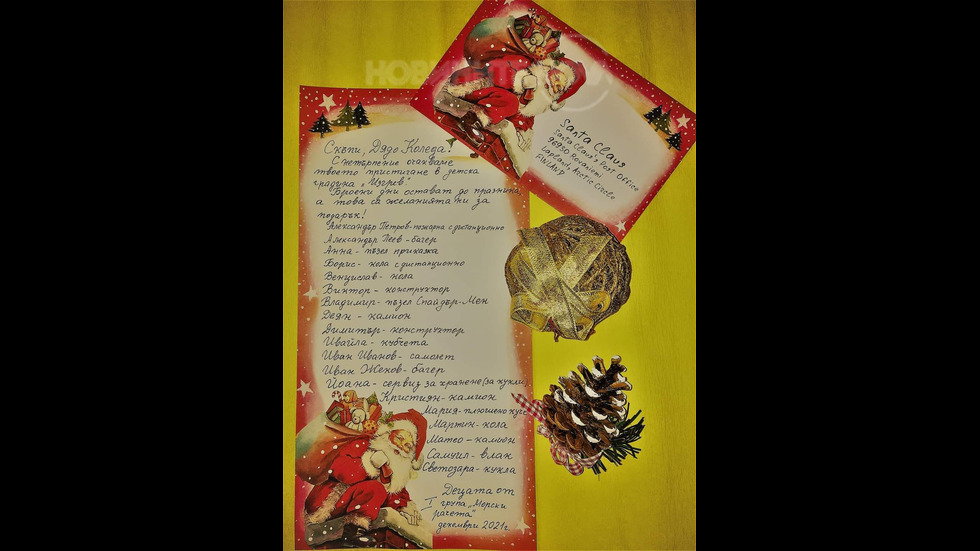 Скъпи, Дядо Коледа!
С нетърпение очакваме
твоето пристигане в детска
градина „Изгрев"
Броени дни остават до празника,
а това са желанията ни за
подарък!
Александър Петров-пожарна с дистанционно
Александър Пеев-багер
Анна- пъзел приказка
Борис- кола с дистанционно
Венцислав- кола
Виктор- конструктор
Владимир- пъзел Спайдър-Мен
Деян- камион
Димитър- конструктор
Ивайла- кубчета
Иван Иванов- самолет
Иван Жеков- багер
Йоана- сервиз за хранене(за кукли)
Кристиян-камион
Мария-плюшено куче
Мартин-кола
Матео-камион
Самуил-влак
Светозара-кукла
Децата от
I група „Морски
рачета"
декември 2021г
Santa Claus
Santa Claus's Post Office
96930 Rovaniemi
Lapland, Arctic Circle
FINLAND